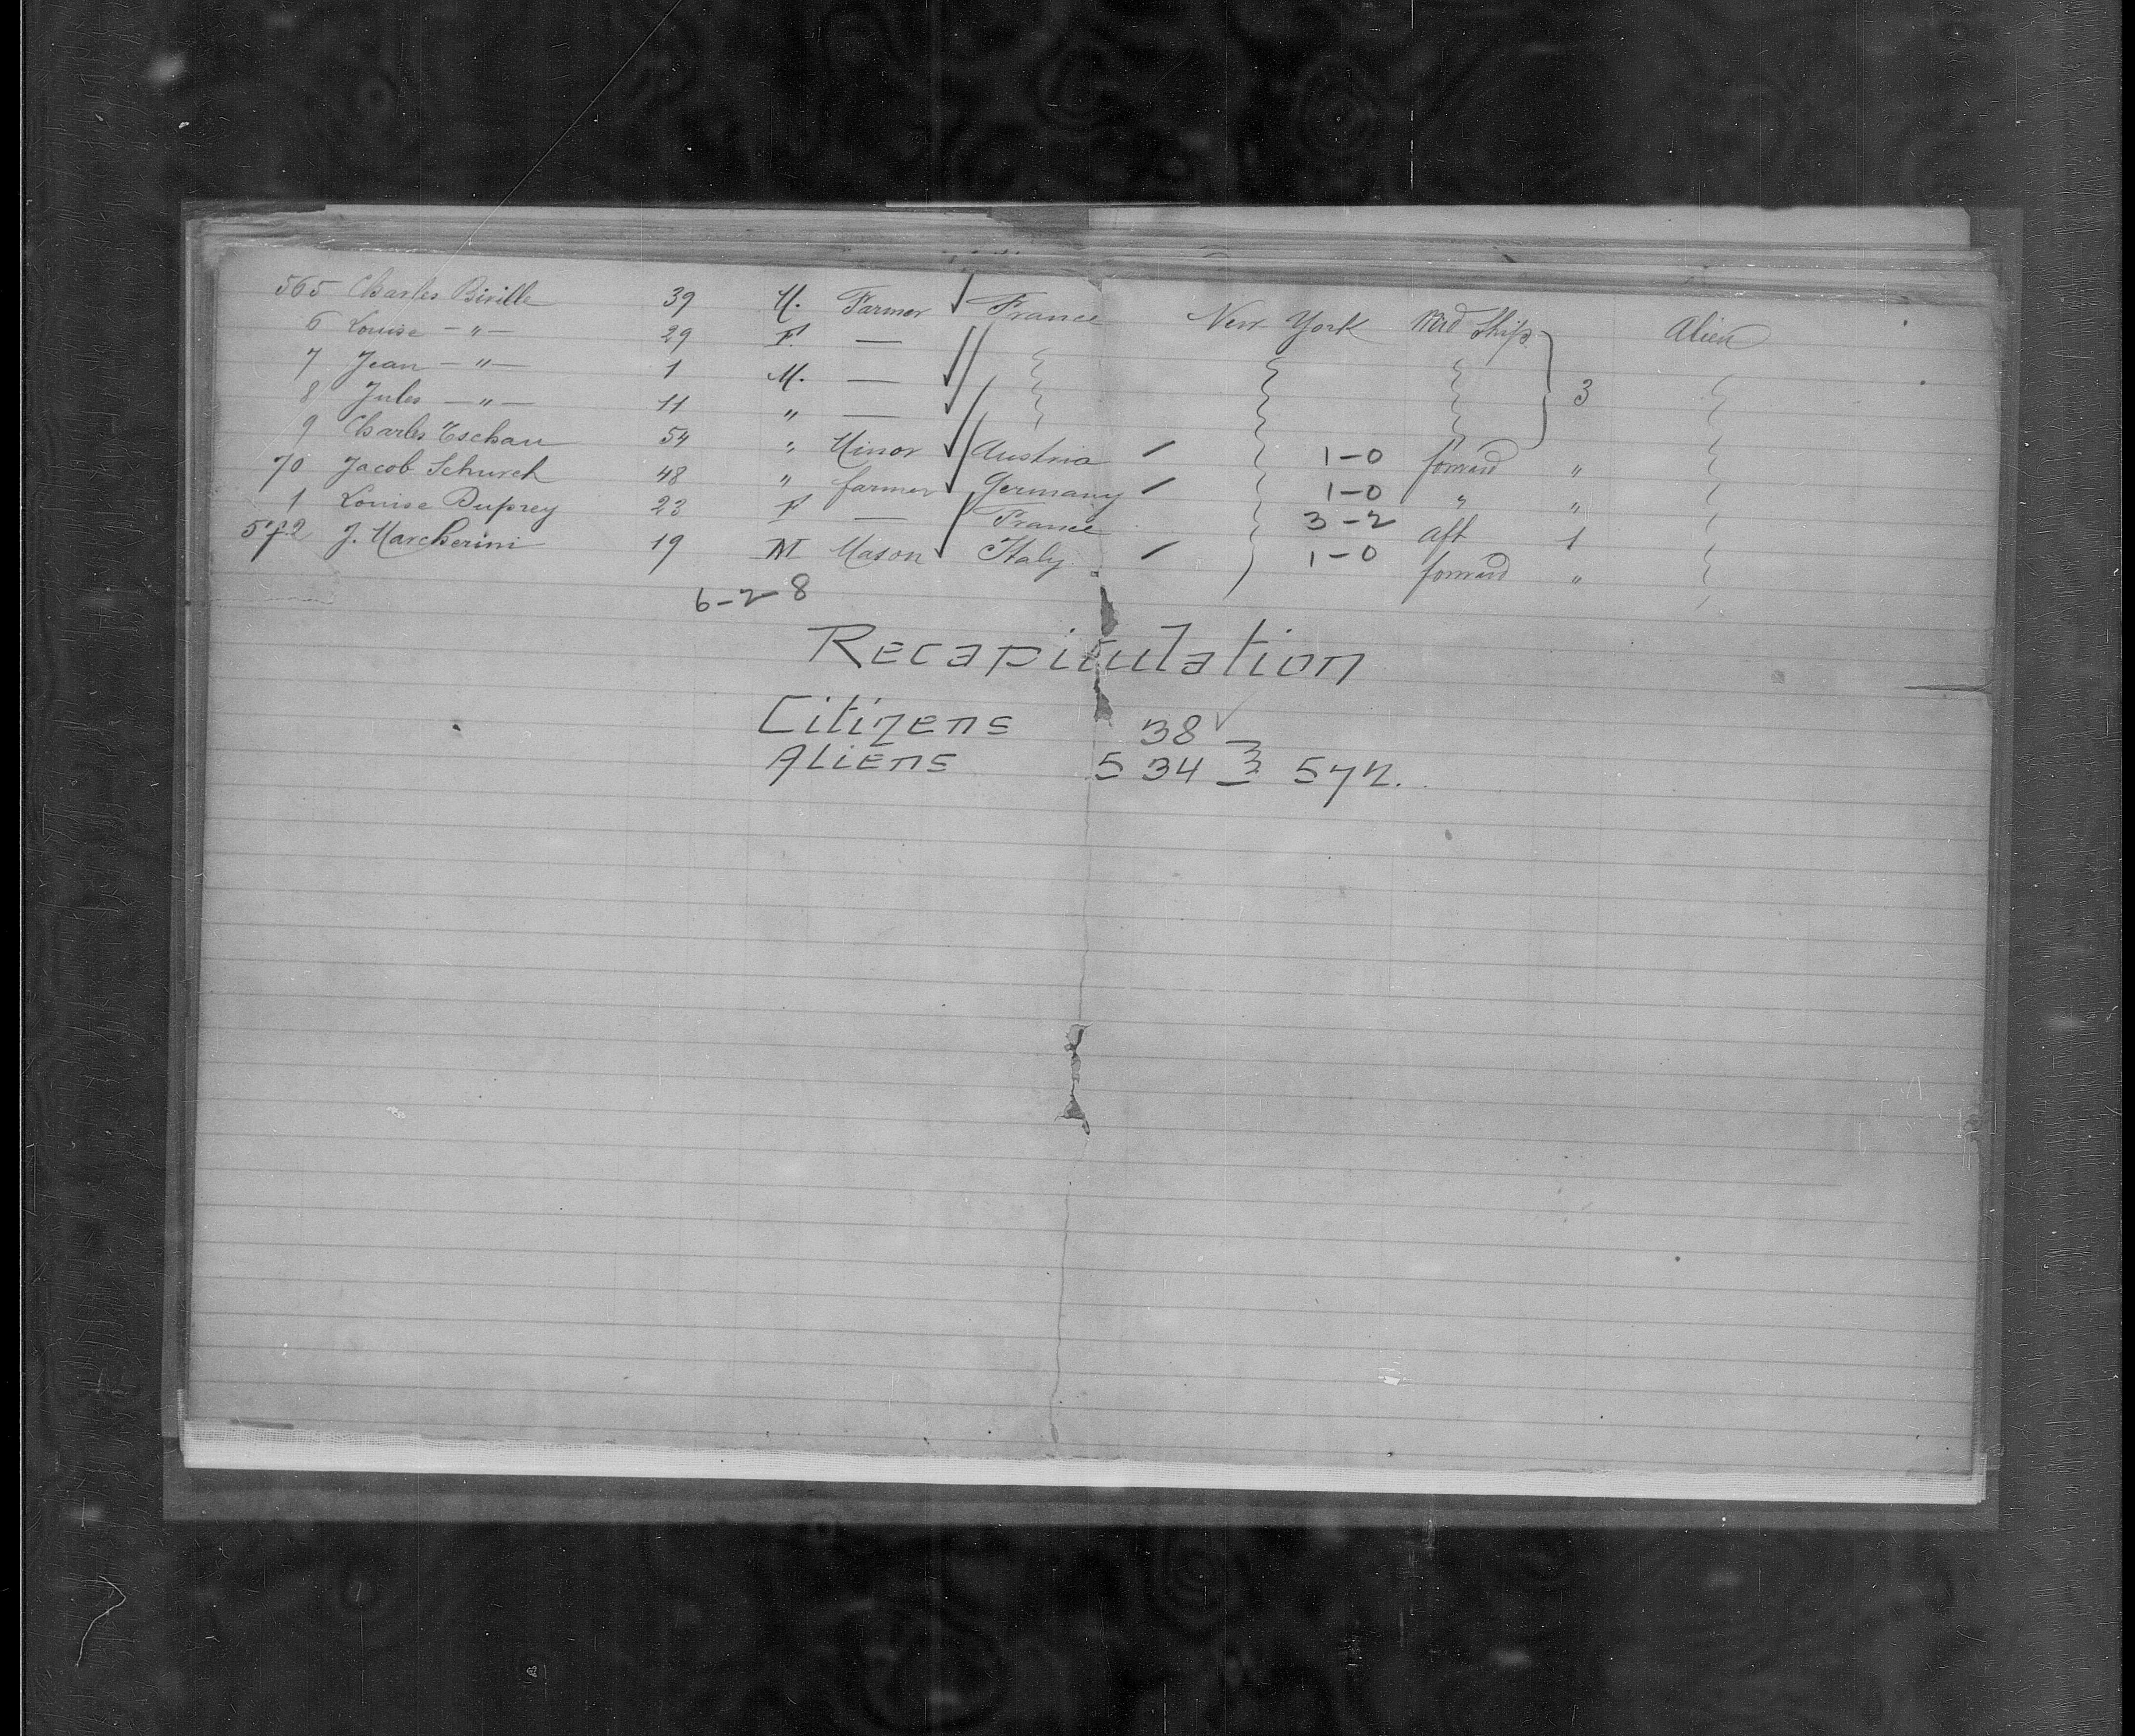 565 Charles Biville 39 M. Farmer France New York Mid Ship 3 Alien
6 Louise — " — 29 F. —
7 Jean — " — 1 M. —
8 Jules — " — 11 " —
9 Charles Eschau 54 " Minor Austria 1-0 forward "
70 Jacob Schurch 48 " farmer Germany 1-0 " "
1 Louise Duprey 23 F — France 3-2 aft 1
572 J. Marcherini 19 M Mason Italy 1-0 forward "
6-2-8
Recapitulation
Citizens 38
Aliens 534 572.